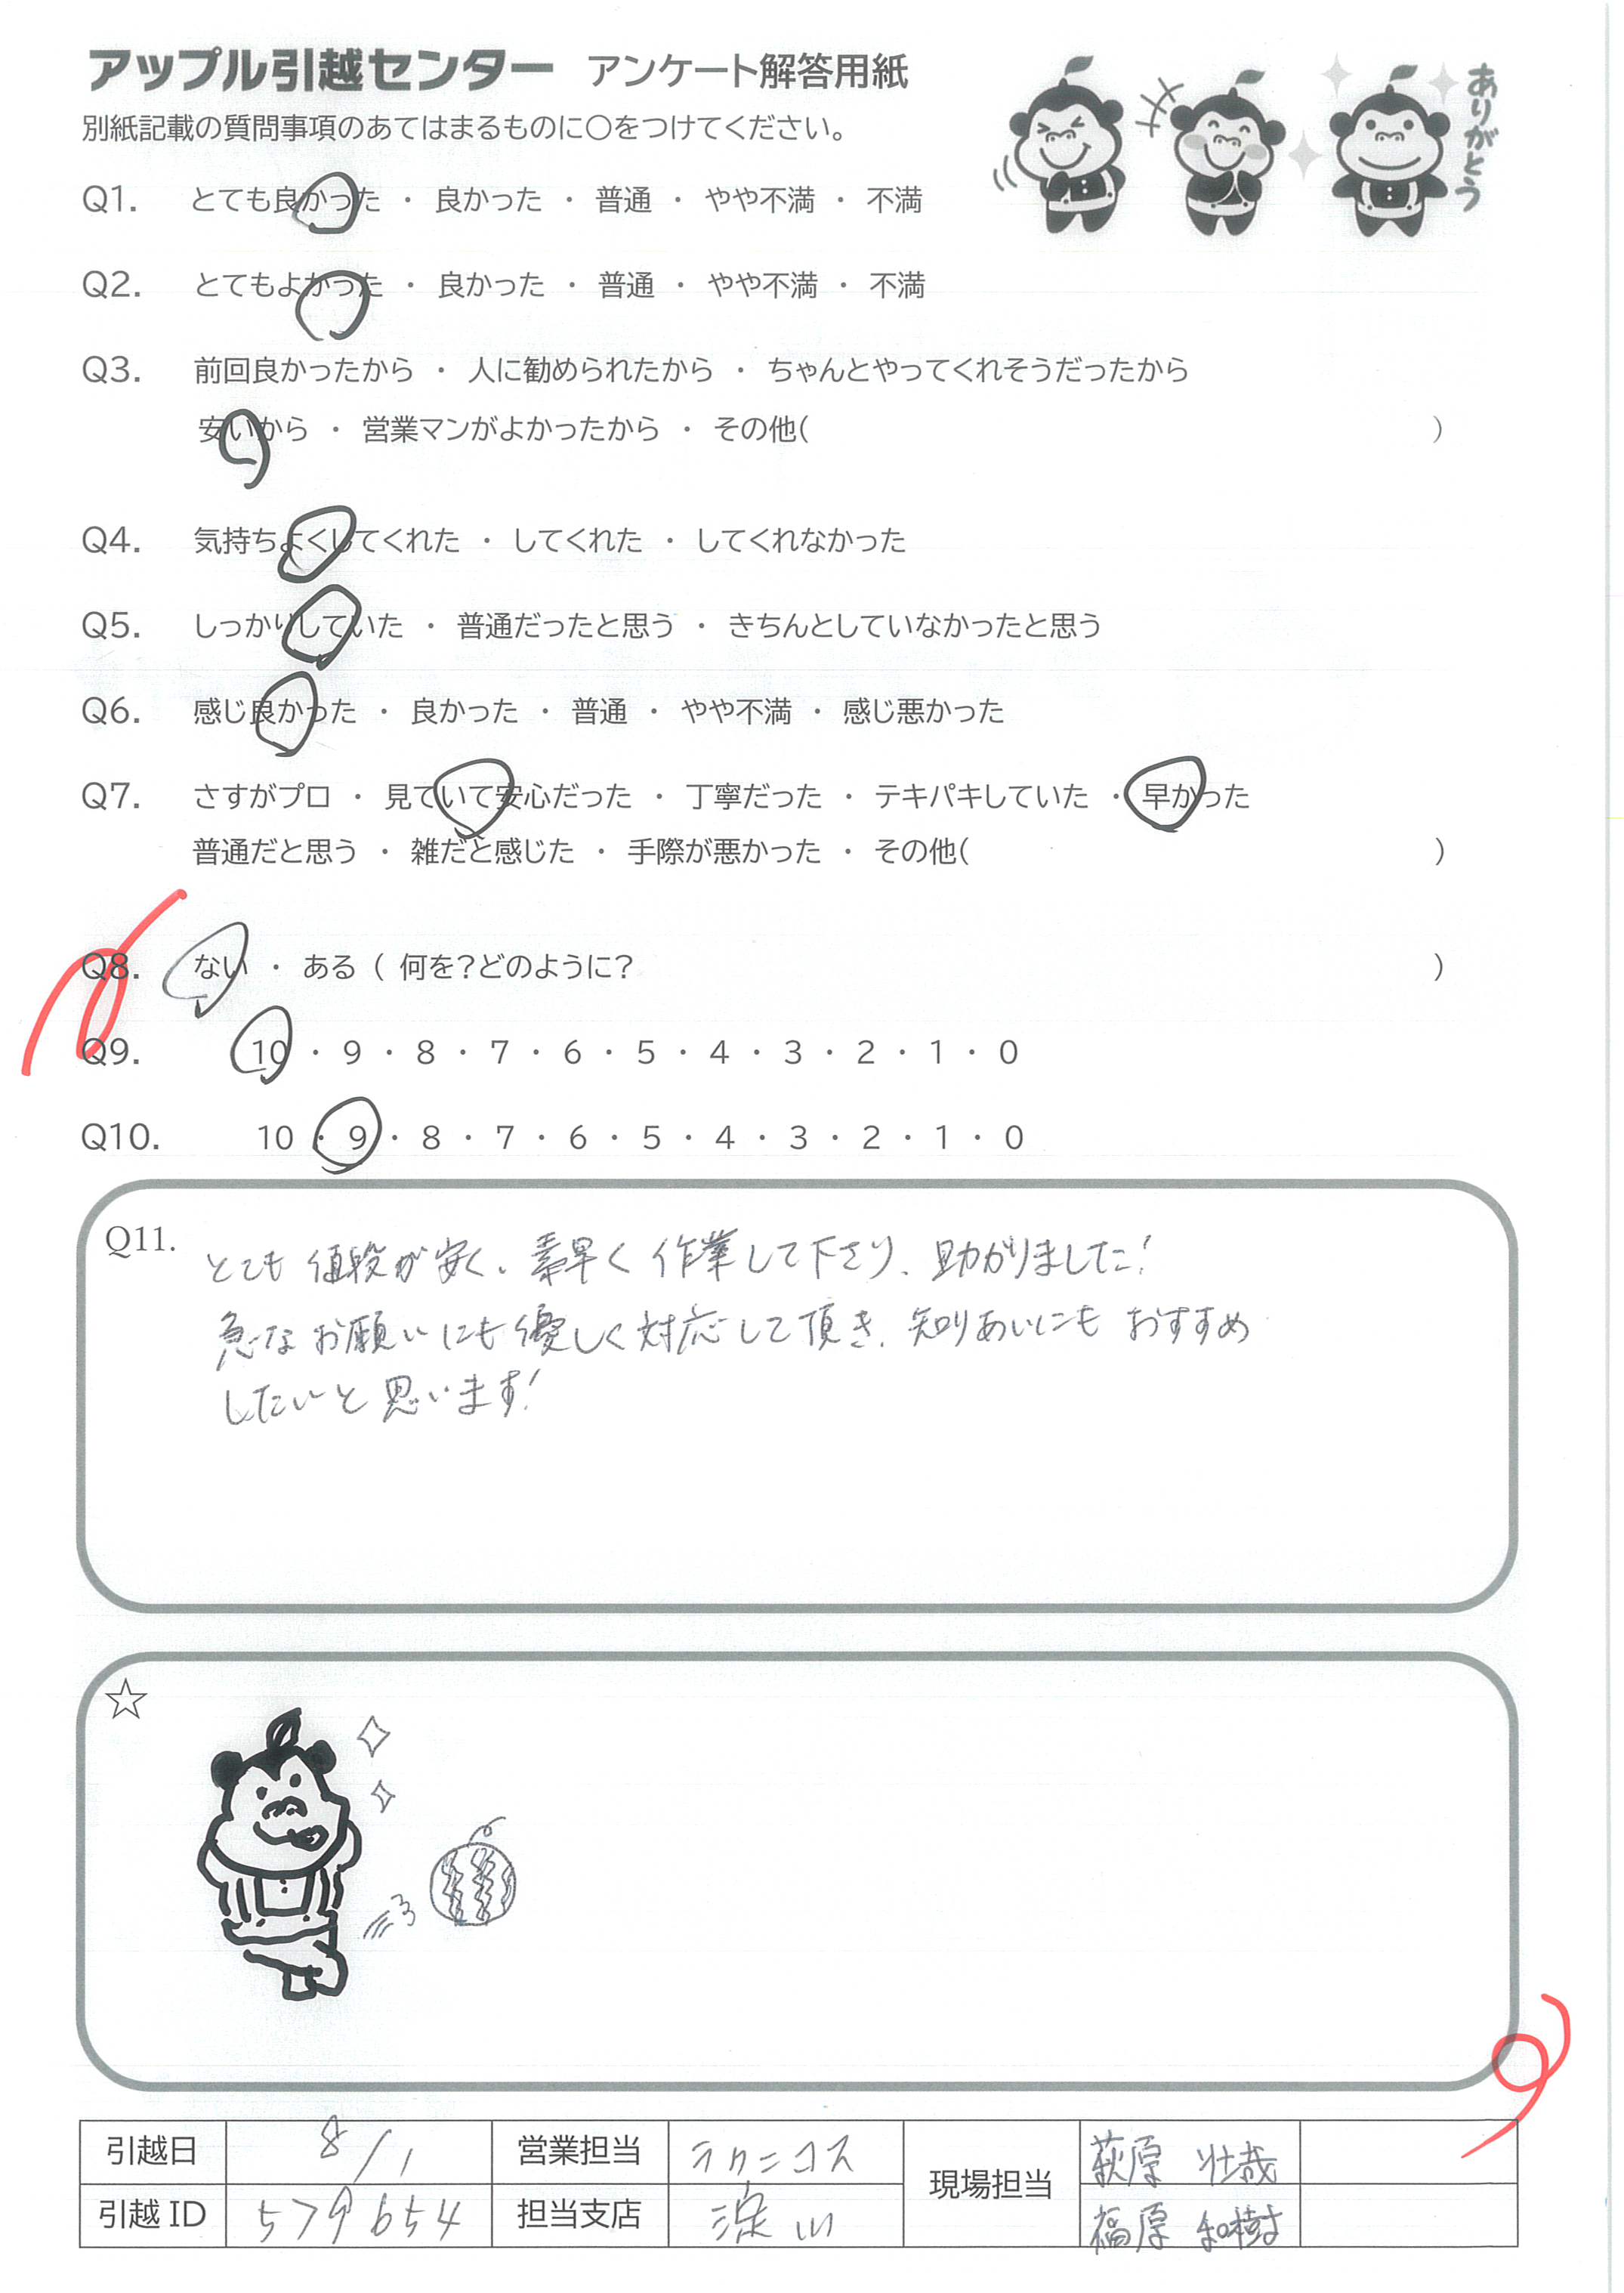 アップル引越センター アンケート解答用紙
別紙記載の質問事項のあてはまるものに○をつけてください。
ありがとう
Q1. とても良かった ・ 良かった ・ 普通 ・ やや不満 ・ 不満
Q2. とてもよかった ・ 良かった ・ 普通 ・ やや不満 ・ 不満
Q3. 前回良かったから ・ 人に勧められたから ・ ちゃんとやってくれそうだったから
安いから ・ 営業マンがよかったから ・ その他( )
Q4. 気持ちよくしてくれた ・ してくれた ・ してくれなかった
Q5. しっかりしていた ・ 普通だったと思う ・ きちんとしていなかったと思う
Q6. 感じ良かった ・ 良かった ・ 普通 ・ やや不満 ・ 感じ悪かった
Q7. さすがプロ ・ 見ていて安心だった ・ 丁寧だった ・ テキパキしていた ・ 早かった
普通だと思う ・ 雑だと感じた ・ 手際が悪かった ・ その他( )
Q8. ない ・ ある ( 何を?どのように? )
Q9. 10 ・ 9 ・ 8 ・ 7 ・ 6 ・ 5 ・ 4 ・ 3 ・ 2 ・ 1 ・ 0
Q10. 10 ・ 9 ・ 8 ・ 7 ・ 6 ・ 5 ・ 4 ・ 3 ・ 2 ・ 1 ・ 0
Q11. とても値段が安く、素早く作業して下さり、助かりました!
急なお願いにも優しく対応して頂き、知りあいにもおすすめ
したいと思います!
☆
引越日 8/1 営業担当 ラクニコス 現場担当 萩原 壮哉
引越ID 579654 担当支店 淀川 福原 和樹